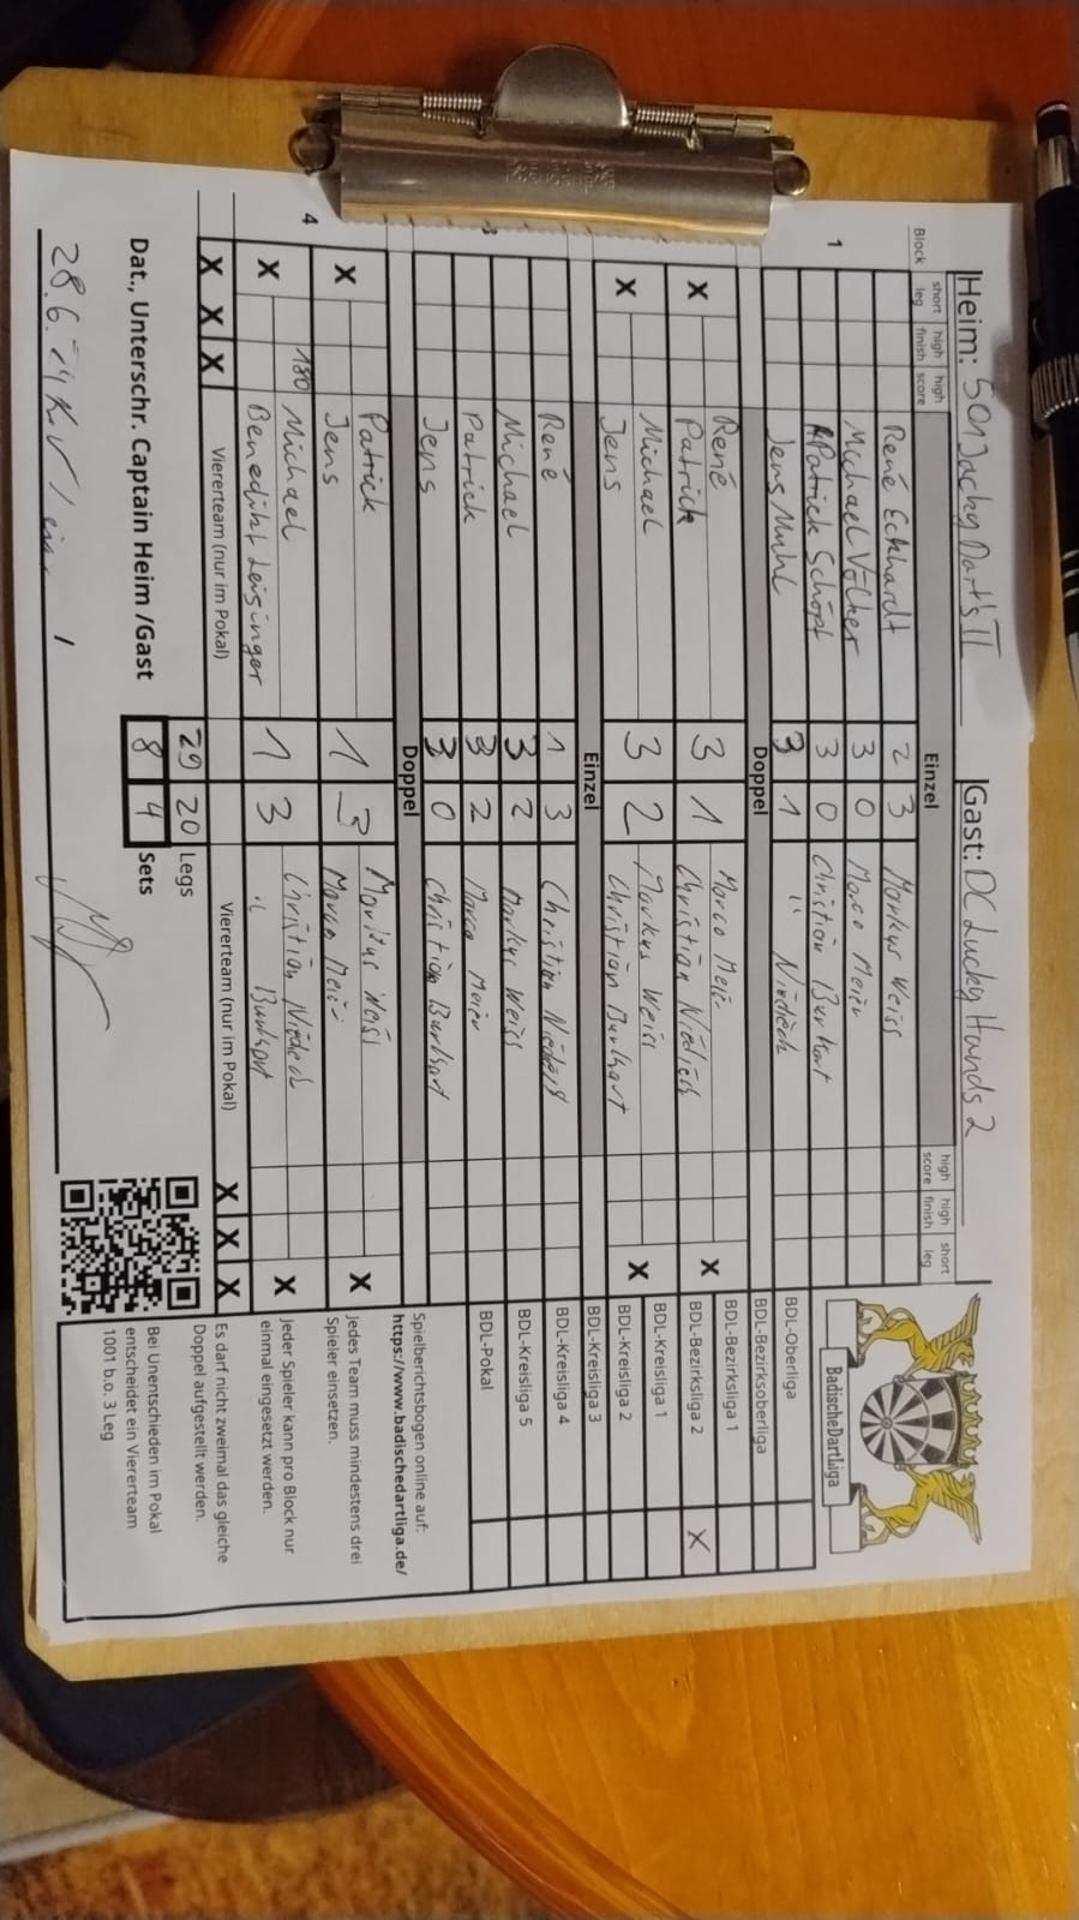 Heim: 501 Jacky Dart's II Gast: DC Lucky Hands 2
Block short leg high finish high score Einzel high score high finish short leg
1 René Eckhardt 2 3 Markus Weiss
Michael Völker 3 0 Marco Meier
Patrick Schöpf 3 0 Christian Burkart
Jens Muhl 3 1 "
Doppel
X René 3 1 Marco Meier X
Patrick Christian
X Michael 3 2 Markus Weiss X
Jens Christian Burkhart
Einzel
3 René 1 3 Christian
Michael 3 2 Markus Weiss
Patrick 3 2 Marco Meier
Jens 3 0 Christian Burkhart
Doppel
4 X Patrick 1 3 Weiss X
Jens Marco Meier
X 180 Michael 1 3 Christian X
Benedikt Leisinger " Burkhart
X X X Viererteam (nur im Pokal) Viererteam (nur im Pokal) X X X
29 20 Legs
Dat., Unterschr. Captain Heim /Gast 8 4 Sets
28.6.
BadischeDartLiga
BDL-Oberliga
BDL-Bezirksoberliga
BDL-Bezirksliga 1
BDL-Bezirksliga 2 X
BDL-Kreisliga 1
BDL-Kreisliga 2
BDL-Kreisliga 3
BDL-Kreisliga 4
BDL-Kreisliga 5
BDL-Pokal
Spielberichtsbogen online auf:
https://www.badischedartliga.de/
Jedes Team muss mindestens drei
Spieler einsetzen.
Jeder Spieler kann pro Block nur
einmal eingesetzt werden.
Es darf nicht zweimal das gleiche
Doppel aufgestellt werden.
Bei Unentschieden im Pokal
entscheidet ein Viererteam
1001 b.o. 3 Leg